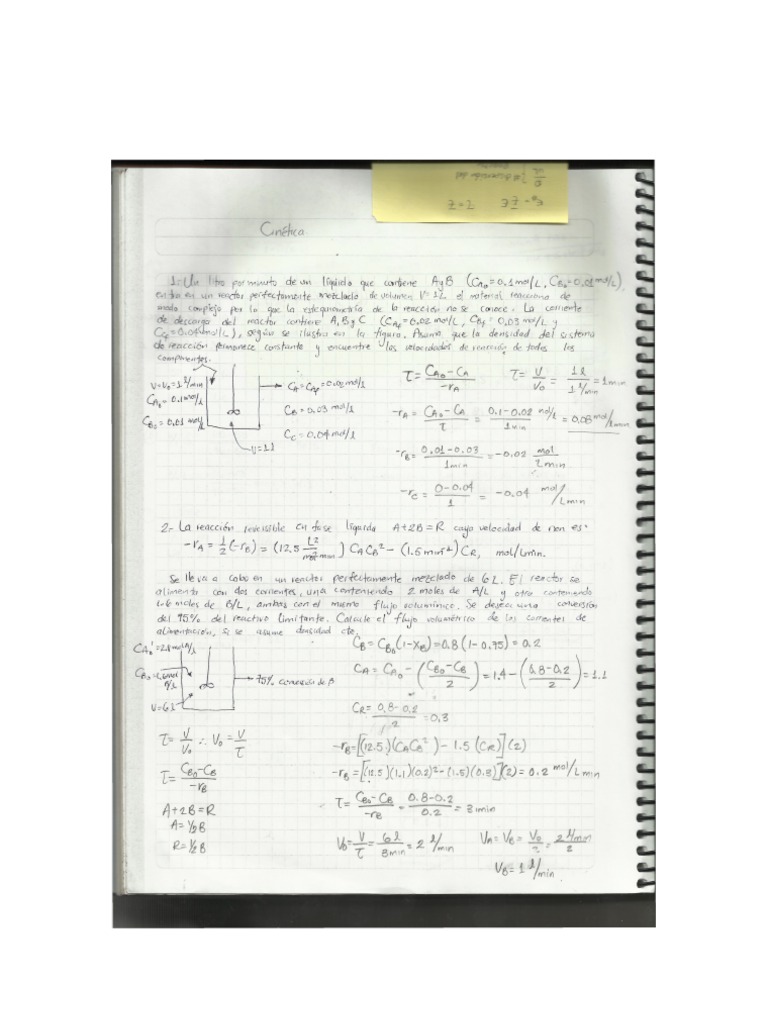 Cinética
1.- Un litro por minuto de un líquido que contiene A y B (CAo=0.1mol/L, CBo=0.01mol/L)
entra en un reactor perfectamente mezclado de volumen V=1L el material reacciona de
modo complejo por lo que la estequiometría de la reacción no se conoce. La corriente
de descarga del reactor contiene A, B y C (CAf=0.02 mol/L, CBf=0.03 mol/L y
CCf=0.04mol/L), según se ilustra en la figura. Asuma que la densidad del sistema
de reacción permanece constante y encuentre las velocidades de reacción de todos los
componentes.
V=Vo=1 l/min
CAo=0.1mol/l
CBo=0.01 mol/l
V=1l
CA=CAf=0.02 mol/l
CB=0.03 mol/l
CC=0.04 mol/l
τ = (CAo-CA)/(-rA)
τ = V/Vo = 1l/(1 l/min) = 1min
-rA = (CAo-CA)/τ = (0.1-0.02 mol/l)/1min = 0.08 mol/lmin
-rB = (0.01-0.03)/1min = -0.02 mol/Lmin
-rC = (0-0.04)/1 = -0.04 mol/Lmin
2.- La reacción reversible en fase líquida A+2B=R cuya velocidad de rxn es:
CACB² - (1.5 min⁻¹) CR, mol/Lmin.
Se lleva a cabo en un reactor perfectamente mezclado de 6L. El reactor se
alimenta con dos corrientes, una conteniendo 2 moles de A/L y otra conteniendo
1.6 moles de B/L, ambas con el mismo flujo volumínico. Se desea una conversión
del 75% del reactivo limitante. Calcule el flujo volumétrico de las corrientes de
alimentación, si se asume densidad cte.
V=6l
75% conversión de B
CB = CBo(1-XB) = 0.8(1-0.75) = 0.2
CA = CAo - ((CBo-CB)/2) = 1.4 - ((0.8-0.2)/2) = 1.1
CR = (0.8-0.2)/2 = 0.3
τ = V/Vo ∴ Vo = V/τ
τ = (CBo-CB)/(-rB)
A+2B=R
A=½B
R=½B
-rB = [(12.5)(CACB²) - 1.5(CR)](2)
-rB = [(12.5)(1.1)(0.2)² - (1.5)(0.3)](2) = 0.2 mol/Lmin
τ = (CBo-CB)/(-rB) = (0.8-0.2)/0.2 = 3min
Vo = V/τ = 6l/3min = 2 l/min
VA = VB = Vo/2 = (2 l/min)/2
VB = 1 l/min